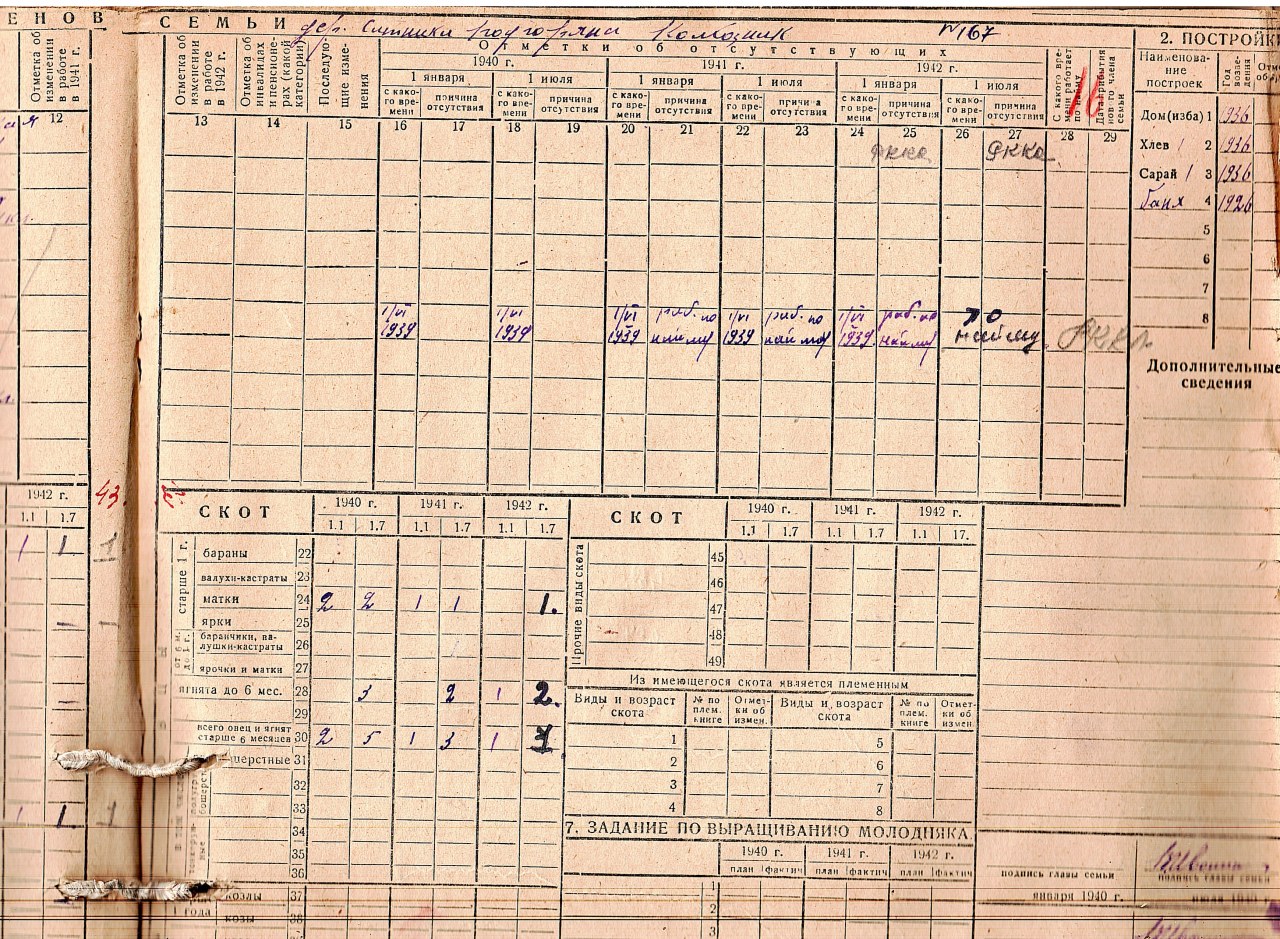 ЕНОВ СЕМЬИ дер. Колхозник №167
Отметка об изменении в работе в 1941 г.
12
Отметка об изменении в работе в 1942 г.
Отметка об инвалидах и пенсионерах (какой категории)
Последующие изменения
Отметки об отсутствующих
1940 г. 1941 г. 1942 г.
1 января 1 июля 1 января 1 июля 1 января 1 июля
с какого времени причина отсутствия с какого времени причина отсутствия с какого времени причина отсутствия с какого времени причина отсутствия с какого времени причина отсутствия с какого времени причина отсутствия
С какого времени работает
Дата прибытия нового члена семьи
13 14 15 16 17 18 19 20 21 22 23 24 25 26 27 28 29
РККА РККА
1/VI 1939 1/VI 1939 1/VI 1939 раб. по найму 1/VI 1939 раб. по найму 1/VI 1939 раб. по найму по найму РККА
2. ПОСТРОЙКИ
Наименование построек
Год возведения
Дом (изба) 1 1936
Хлев 1 2 1936
Сарай 1 3 1936
баня 4 1926
5
6
7
8
Дополнительные
сведения
1942 г. 43.
1.1 1.7
1 1 1
1 1 1
СКОТ 1940 г. 1941 г. 1942 г.
1.1 1.7 1.1 1.7 1.7
старше 1 г.
бараны 22
валухи-кастраты 23
матки 24 2 2 1 1 1.
ярки 25
от 6 м. до 1 г.
баранчики, валушки-кастраты 26
ярочки и матки 27
ягнята до 6 мес. 28 3 2 1 2.
29
всего овец и ягнят старше 6 месяцев 30 2 5 1 3 1
шерстные 31
32
33
34
35
36
козлы 37
1 года козы 38
СКОТ 1940 г. 1941 г. 1942 г.
1.1 1.7 1.1 1.7 1.1 17.
Прочие виды скота
45
46
47
48
49
Из имеющегося скота является племенным
Виды и возраст скота № по плем. книге Отметки об измен. Виды и возраст скота № по плем. книге Отметки об измен.
1 5
2 6
3 7
4 8
7. ЗАДАНИЕ ПО ВЫРАЩИВАНИЮ МОЛОДНЯКА
1940 г. 1941 г. 1942 г.
план фактич план фактич план фактич
1
2
3
подпись главы семьи подпись главы семьи
января 1940 г. июля 1940 г.